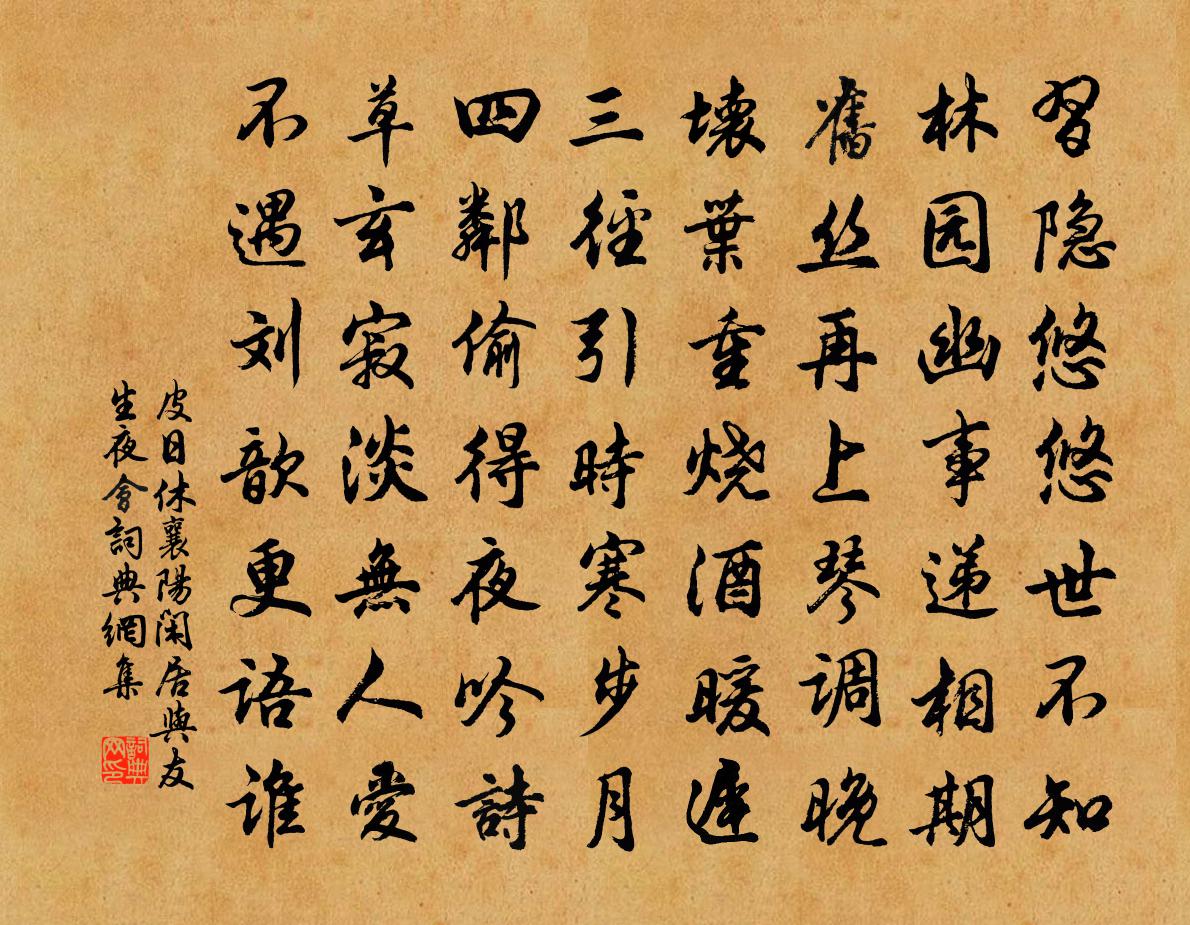 習隐悠悠世不知
林园幽事递相期
舊丝再上琴调晚
壊葉重烧酒暖遲
三徑引時寒步月
四鄰偷得夜吟詩
草玄寂淡無人愛
不遇刘歆更語谁
皮日休襄陽閑居與友
生夜會詞典網集
詞典
网印